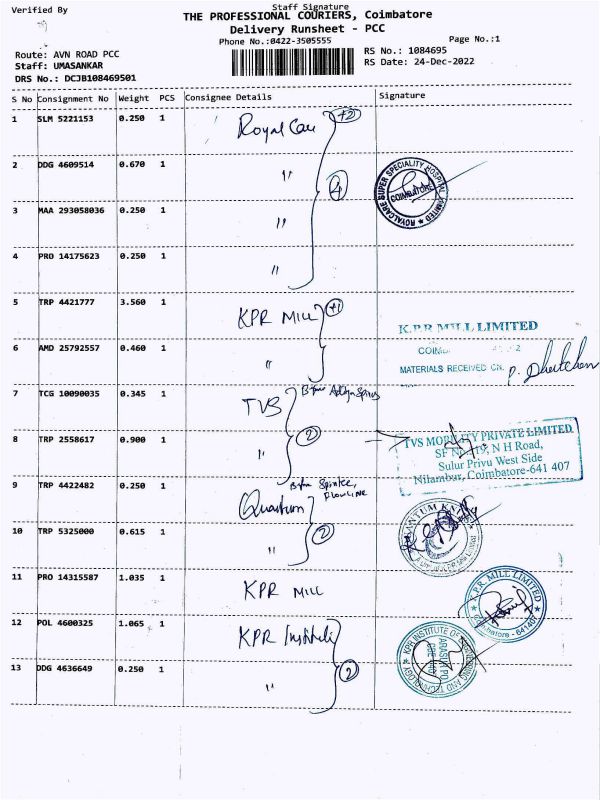 Verified By
Staff Signature
THE PROFESSIONAL COURIERS, Coimbatore
Delivery Runsheet - PCC
Phone No.:0422-3505555
Page No.:1
Route: AVN ROAD PCC
Staff: UMASANKAR
DRS No.: DCJB108469501
RS No.: 1084695
RS Date: 24-Dec-2022
S No Consignment No Weight PCS Consignee Details Signature
1 SLM 5221153 0.250 1 Royal Care +2
2 DDG 4609514 0.670 1 " 4
ROYALCARE SUPER SPECIALITY HOSPITAL LIMITED
COIMBATORE
3 MAA 293058036 0.250 1 "
4 PRO 14175623 0.250 1 "
5 TRP 4421777 3.560 1 KPR MILL +1
K.P.R MILL LIMITED
6 AMD 25792557 0.460 1 "
MATERIALS RECEIVED ON.
7 TCG 10090035 0.345 1 TVS
8 TRP 2558617 0.900 1 " 2
TVS MOBILITY PRIVATE LIMITED
N H Road,
Sulur Privu West Side
Nilambur, Coimbatore-641 407
9 TRP 4422482 0.250 1 Quantum
10 TRP 5325000 0.615 1 " 2
11 PRO 14315587 1.035 1 KPR MILL
K.P.R. MILL LIMITED
Coimbatore - 641407
12 POL 4600325 1.065 1 KPR
KPR INSTITUTE OF ENGINEERING AND TECHNOLOGY
13 DDG 4636649 0.250 1 " 2